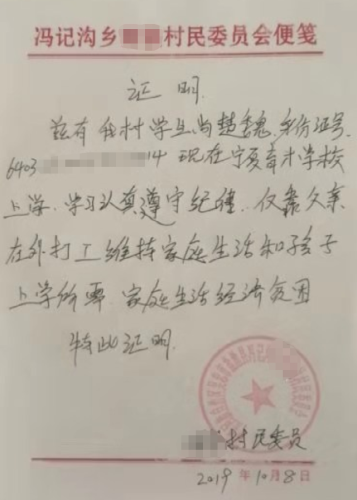 冯记沟乡 村民委员会便笺
证明
兹有我村学生尚楚魏,身份证号
6403 14 现在宁夏育才学校
上学,学习认真遵守纪律,仅靠父亲
在外打工维持家庭生活和孩子
上学所需 家庭生活经济贫困
特此证明.
村民委员
2019年10月8日